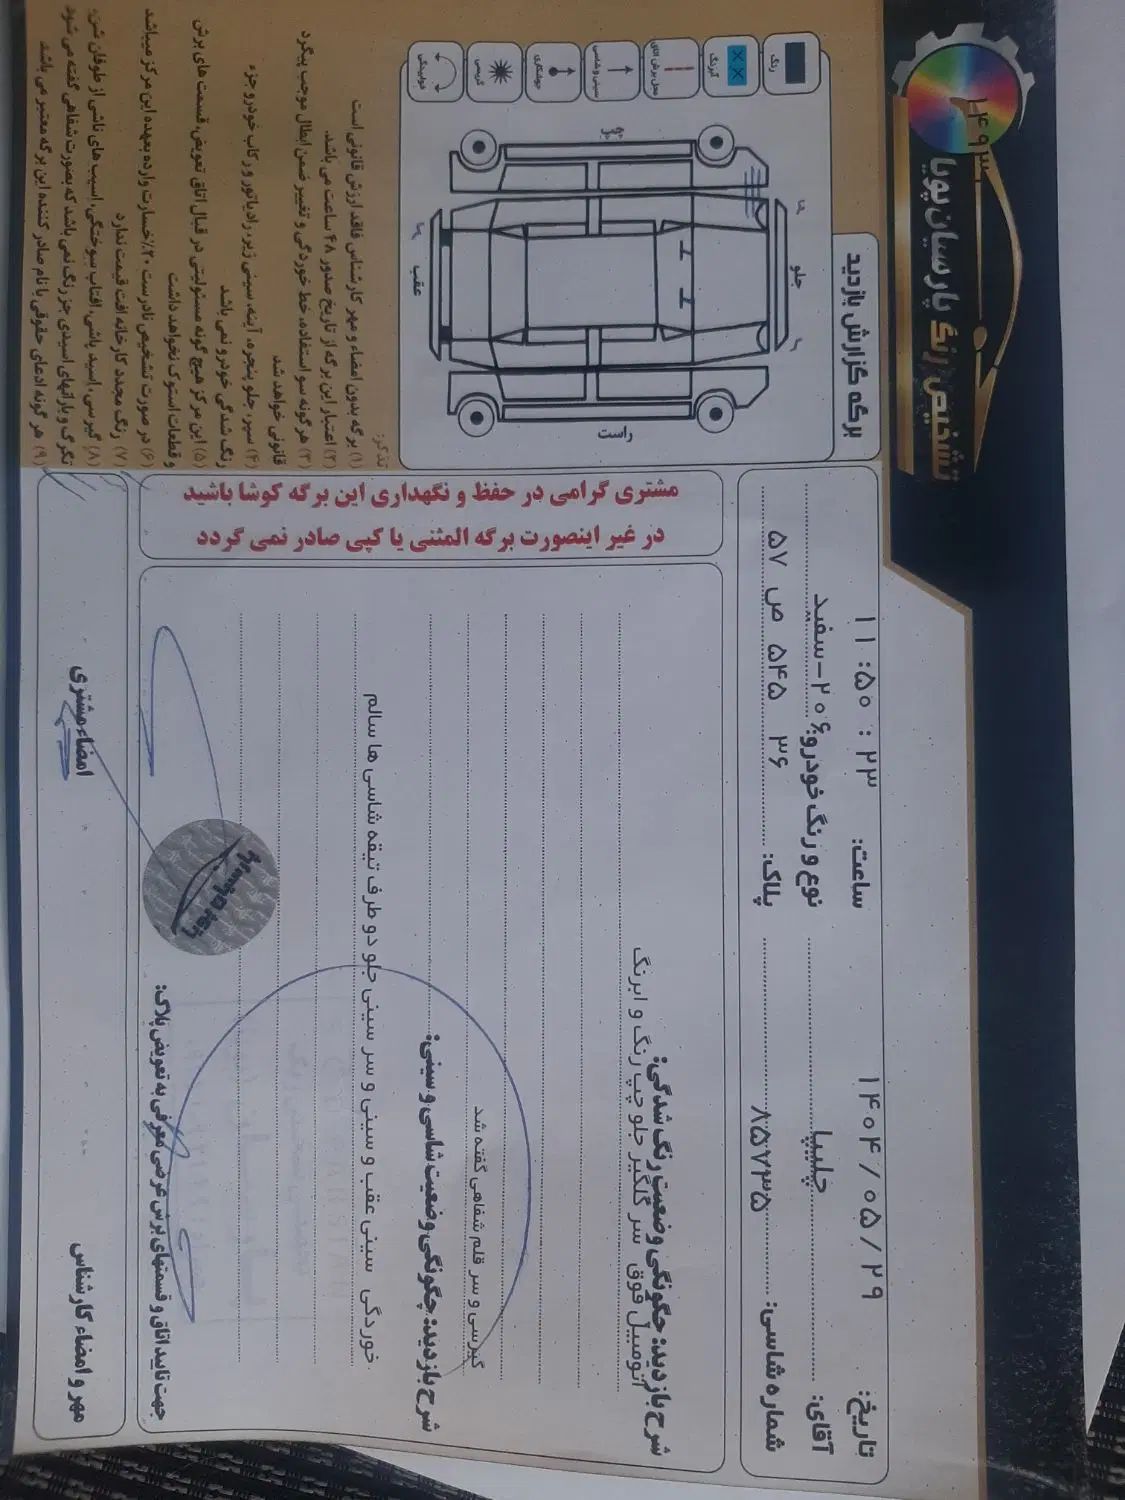 تشخیص رنگ پارسیان پویا
۱۴۹۳
برگه گزارش بازدید
تاریخ: ۱۴۰۴/۰۵/۲۹
ساعت: ۱۱:۵۰:۲۳
آقای: چلیپا
نوع و رنگ خودرو: ۲۰۶-سفید
شماره شاسی: ۸۵۷۳۵
پلاک: ۵۷ ص ۵۴۵ ۳۶
جلو
عقب
راست
رنگ
آبرنگ
محل برش اتاق
سینی و شاسی
جوشکاری
گریسی
خوابیدگی
شرح بازدید: چگونگی وضعیت رنگ شدگی:
اتومبیل فوق سر گلگیر جلو چپ رنگ و ابرنگ
گیرسی و سر قلم شفاهی گفته شد
شرح بازدید: چگونگی وضعیت شاسی و سینی:
خوردگی سینی عقب و سینی و سر سینی جلو دو طرف تیقه شاسی ها سالم
جهت تایید اتاق و قسمتهای برش عرضی معرفی به تعویض پلاک:
مهر و امضاء کارشناس
امضاء مشتری
مشتری گرامی در حفظ و نگهداری این برگه کوشا باشید
در غیر اینصورت برگه المثنی یا کپی صادر نمی گردد
تذکر:
(۱) برگه بدون امضاء و مهر کارشناس فاقد ارزش قانونی است
(۲) اعتبار این برگه از تاریخ صدور ۴۸ ساعت می باشد.
(۳) هر گونه سو استفاده، خط خوردگی و تغییر ضمن ابطال موجب پیگرد
قانونی خواهد شد
(۴) سپر، جلو پنجره، آینه، سینی زیر، رادیاتور و رکاب خودرو جزء
رنگ شدگی خودرو نمی باشد
(۵) این مرکز هیچ گونه مسئولیتی در قبال اتاق تعویض، قسمت های برش
و قطعات استوک نخواهد داشت
(۶) در صورت تشخیص نادرست ۲۰٪ خسارت وارده بعهده این مرکز میباشد
(۷) رنگ مجدد کارخانه افت قیمت ندارد
(۸) گیرسی، اسید پاشی، افتاب سوختگی، اسیب های ناشی از طوفان شن،
تگرگ و بارانهای اسیدی جز رنگ نمی باشد که بصورت شفاهی گفته می شود
(۹) هر گونه ادعای حقوقی با نام صادر کننده این برگه معتبر می باشد